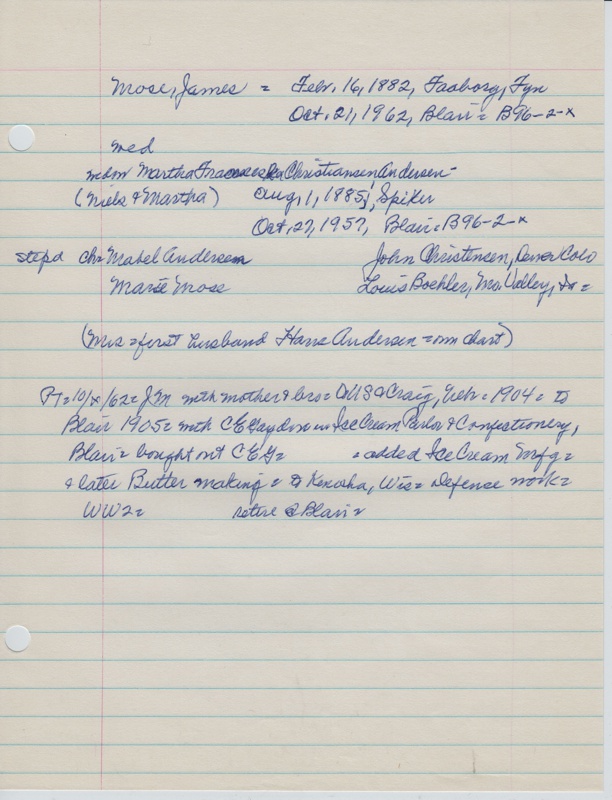 Mose, James = Febr. 16, 1882, Faaborg, Fyn
Oct. 21, 1962, Blair = B96-2-x
med
Martha Christiansen Andersen -
(Niels & Martha) Aug. 1, 1885, Spiker
Oct. 27, 1957, Blair = B96-2-x
stepd Chr Mabel Andersen John Christensen, Denver Colo
Marie Mose Louis Boehler, Mo. Valley, Ia =
(Mrs = first husband Hans Andersen = own chart)
PT = 10/x/62 = JM with mother & bro = O US @ Craig, Nebr. = 1904 = to
Blair 1905 = with C E Gaydou in Ice Cream Parlor & Confectionery,
Blair = bought out C E G = = added Ice Cream Mfg =
& later Butter making = to Kenosha, Wis = Defense work =
WW2 = retire @ Blair =